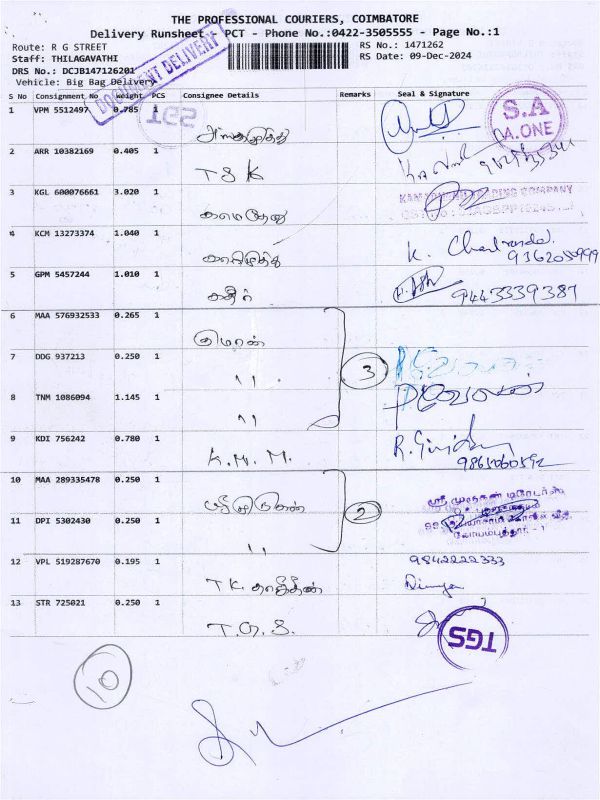 THE PROFESSIONAL COURIERS, COIMBATORE
Delivery Runsheet - PCT - Phone No.:0422-3505555 - Page No.:1
Route: R G STREET
RS No.: 1471262
Staff: THILAGAVATHI
RS Date: 09-Dec-2024
DRS No.: DCJB147126201
Vehicle: Big Bag Delivery
DOCUMENT DELIVERY
S No Consignment No Weight PCS Consignee Details Remarks Seal & Signature
1 VPM 5512497 0.785 1
TGS
S.A
A.ONE
2 ARR 10382169 0.405 1 T S K
3 KGL 600076661 3.020 1 காமதேனு
4 KCM 13273374 1.040 1 காளிமுத்து K.
9362050999
5 GPM 5457244 1.010 1 கதிர் 9443339387
6 MAA 576932533 0.265 1 குமரன்
7 DDG 937213 0.250 1 " 3
8 TNM 1086094 1.145 1 "
9 KDI 756242 0.780 1 K. M. M. R.
9865060592
10 MAA 289335478 0.250 1 ஸ்ரீ முருகன் ஸ்ரீ முருகன் டிரேடர்ஸ்
11 DPI 5302430 0.250 1 " 2
கோயம்புத்தூர் - 1
12 VPL 519287670 0.195 1 T.K. 9842222333
Divya
13 STR 725021 0.250 1 T.G.S. TGS
10